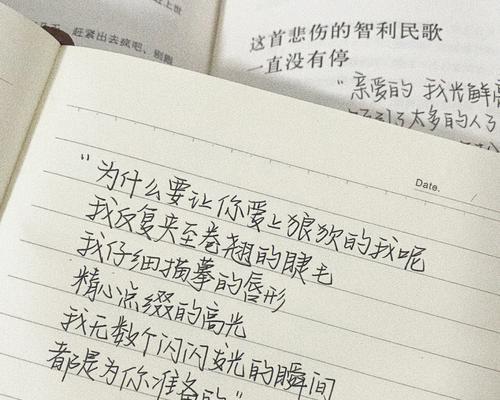 天，赶紧出去疯吧，别跟
这首悲伤的智利民歌
一直没有停
"亲爱的 我光鲜
太多的人了
Date.
"为什么要让你爱上狼狈的我呢
我反复夹至卷翘的睫毛
我仔细描摹的唇形
精心点缀的高光
我无数个闪闪发光的瞬间
都是为你准备的"